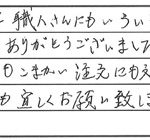 職人さんにもいろい
ありがとうございました
こまかい注文にも
宜しくお願い致しま